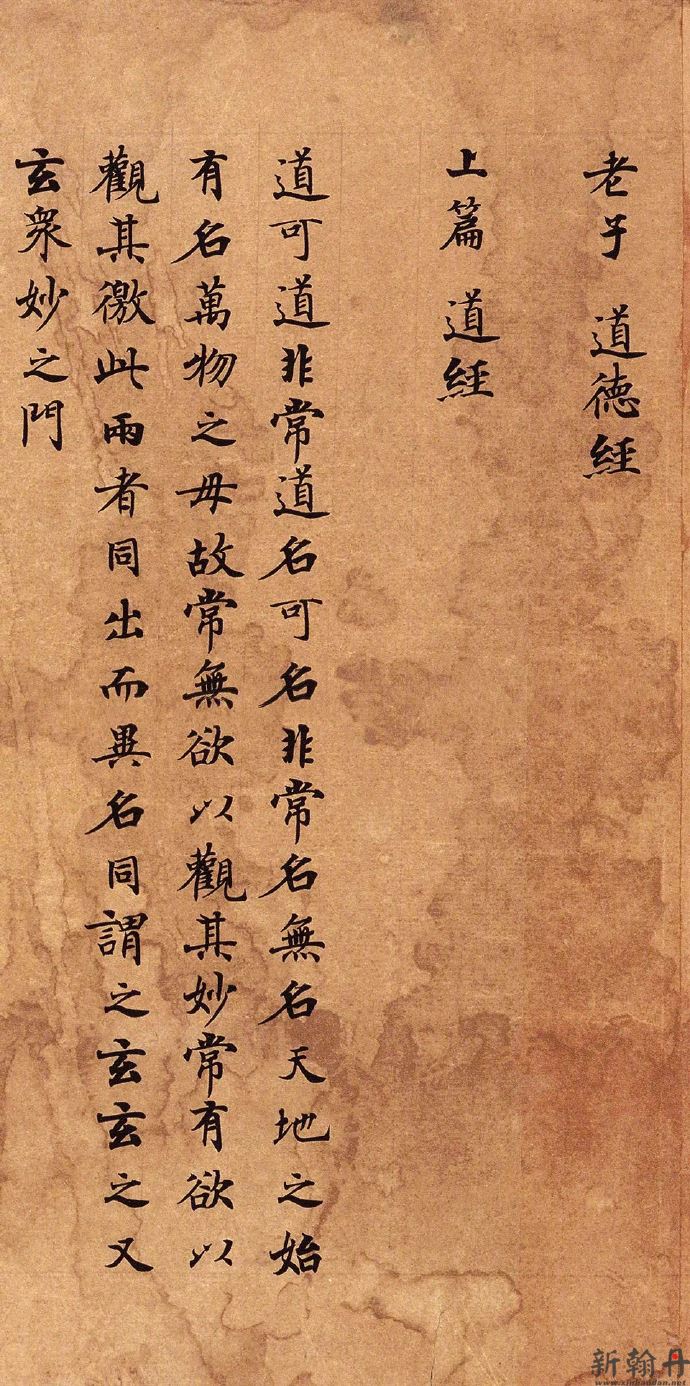 老子 道德經
上篇 道經
道可道非常道名可名非常名無名天地之始
有名萬物之母故常無欲以觀其妙常有欲以
觀其徼此兩者同出而異名同謂之玄玄之又
玄眾妙之門
新翰丹
www.xinhandan.net